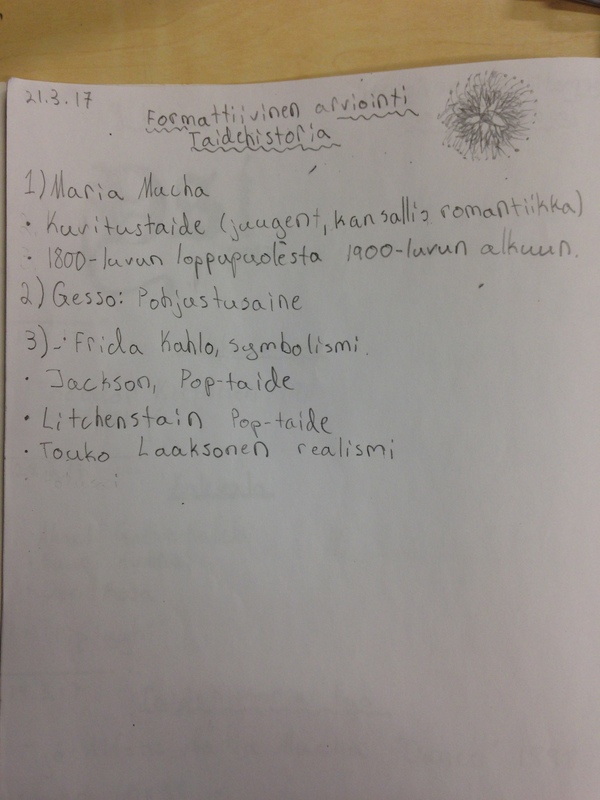 21.3.17
Formattiivinen arviointi
Taidehistoria
1) Maria Mucha
• Kuvitustaide (juugent, kansallis romantiikka)
• 1800-luvun loppupuolesta 1900-luvun alkuun.
2) Gesso: Pohjustusaine
3) - • Frida Kahlo, symbolismi.
• Jackson, Pop-taide
• Litchenstain Pop-taide
• Touko Laaksonen realismi